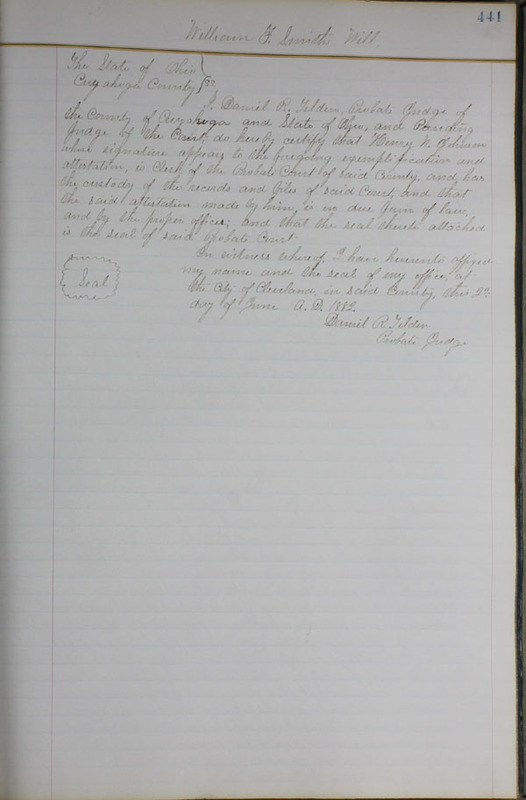 441
William F. Smiths Will
The State of Ohio
Cuyahoga County } ss.
I, Daniel R. Tilden, Probate Judge of
the County of Cuyahoga and State of Ohio, and Presiding
Judge of the Court, do hereby certify that Henry N. Johnson
whose signature appears to the foregoing exemplification and
attestation, is Clerk of the Probate Court of said County, and has
the custody of the records and files of said Court, and that
the said attestation made by him, is in due form of law,
and by the proper officer; and that the seal thereto attached
is the seal of said Probate Court
In witness whereof, I have hereunto affixed
my name and the seal of my office, at
Seal
the City of Cleveland, in said County, this 2d
day of June A. D. 1882.
Daniel R. Tilden
Probate Judge